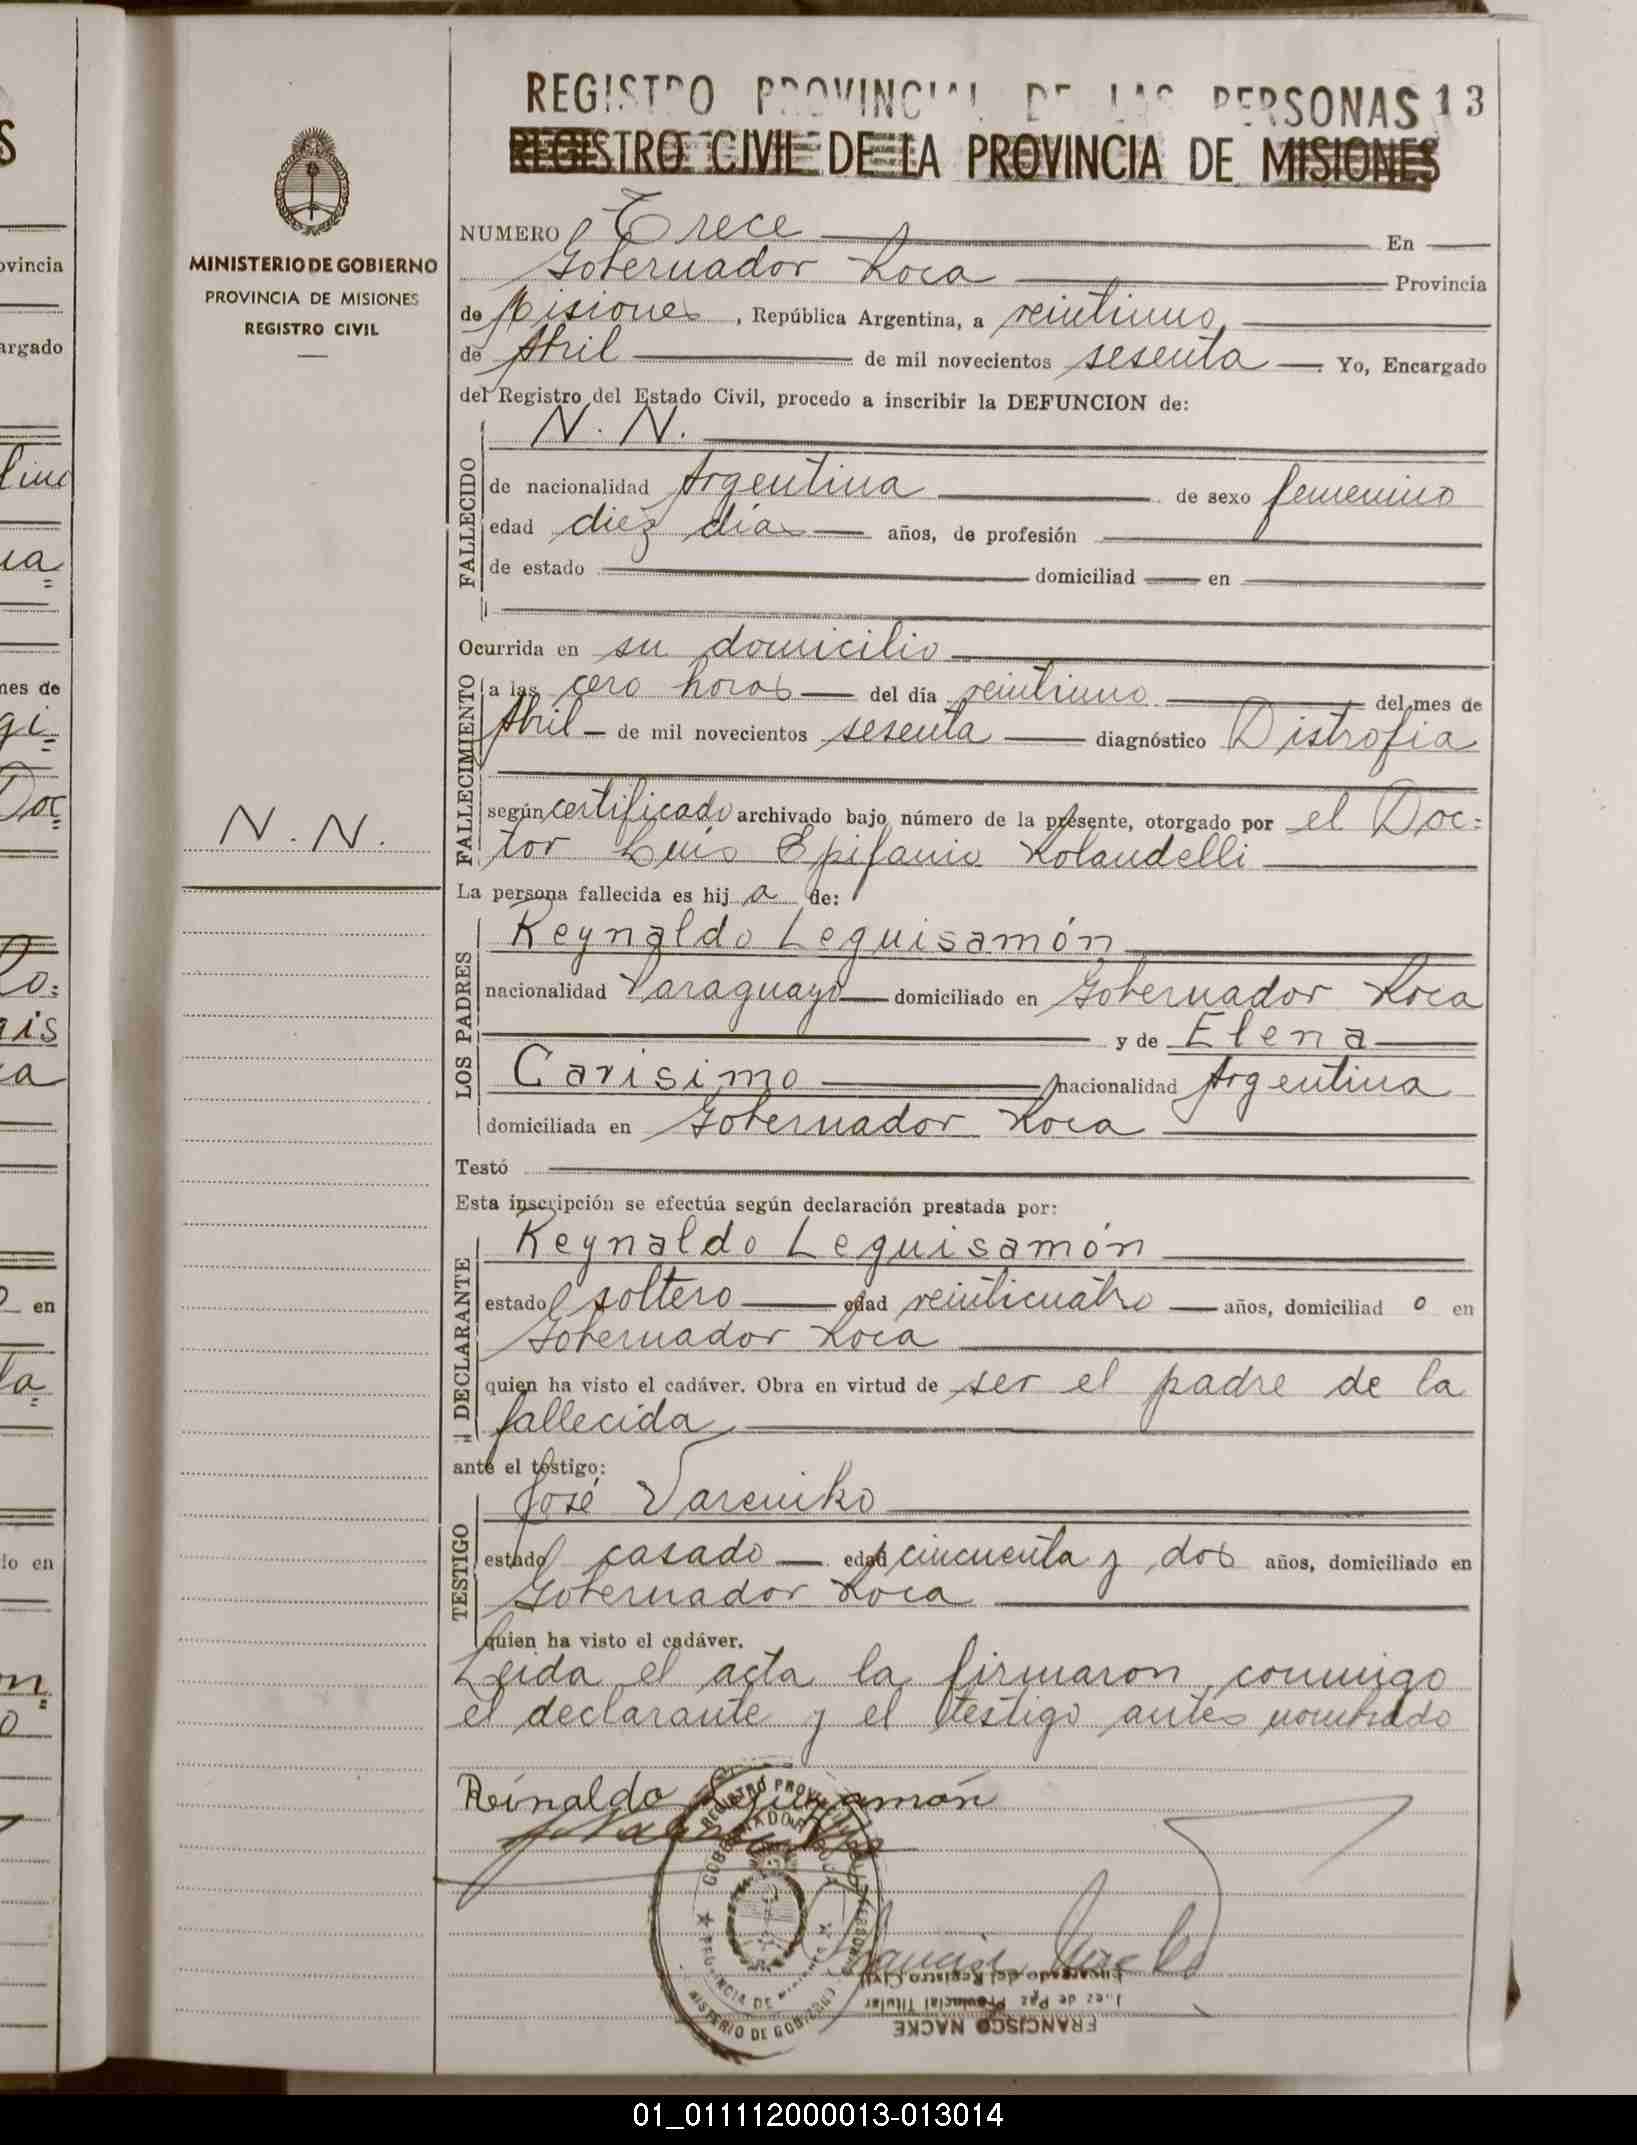 REGISTRO PROVINCIAL DE LAS PERSONAS 13
REGISTRO CIVIL DE LA PROVINCIA DE MISIONES
MINISTERIO DE GOBIERNO
PROVINCIA DE MISIONES
REGISTRO CIVIL
N. N.
NUMERO Trece En
Gobernador Roca Provincia
de Misiones, República Argentina, a veintiuno
de Abril de mil novecientos sesenta. Yo, Encargado
del Registro del Estado Civil, procedo a inscribir la DEFUNCION de:
FALLECIDO
N. N.
de nacionalidad Argentina de sexo femenino
edad diez días años, de profesión
de estado domiciliad en
Ocurrida en su domicilio
FALLECIMIENTO
a las cero horas del día veintiuno del mes de
Abril de mil novecientos sesenta diagnóstico Distrofia
según certificado archivado bajo número de la presente, otorgado por el Doc=
tor Luis Epifanio Rolandelli
La persona fallecida es hij a de:
LOS PADRES
Reynaldo Leguisamón
nacionalidad Paraguayo domiciliado en Gobernador Roca
y de Elena
Carisimo nacionalidad Argentina
domiciliada en Gobernador Roca
Testó
Esta inscripción se efectúa según declaración prestada por:
DECLARANTE
Reynaldo Leguisamón
estado soltero edad veinticuatro años, domiciliad o en
Gobernador Roca
quien ha visto el cadáver. Obra en virtud de ser el padre de la
fallecida
ante el testigo:
TESTIGO
José Vareniko
estado casado edad cincuenta y dos años, domiciliado en
Gobernador Roca
quien ha visto el cadáver.
Leida el acta la firmaron conmigo
el declarante y el testigo antes nombrado
Reinaldo Leguizamón
GOBERNADOR ROCA
PROVINCIA DE MISIONES
MINISTERIO DE GOBIERNO
Encargado del Registro Civil
Juez de Paz Provincial Titular
FRANCISCO NACKE
01_011112000013-013014